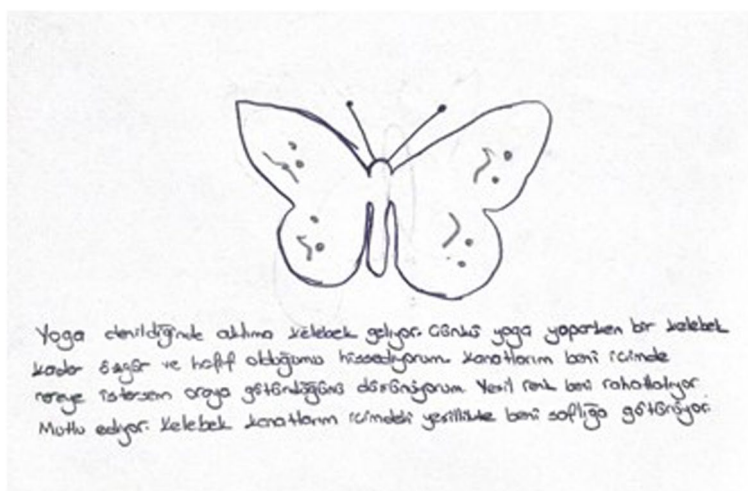 Yoga denildiğinde aklıma kelebek geliyor. Çünkü yoga yaparken bir kelebek
kadar özgür ve hafif olduğumu hissediyorum. Kanatlarım beni içimde
nereye istersem oraya götürdüğünü düşünüyorum. Yeşil renk beni rahatlatıyor.
Mutlu ediyor. Kelebek kanatlarım içimdeki yeşillikte beni saflığa götürüyor.